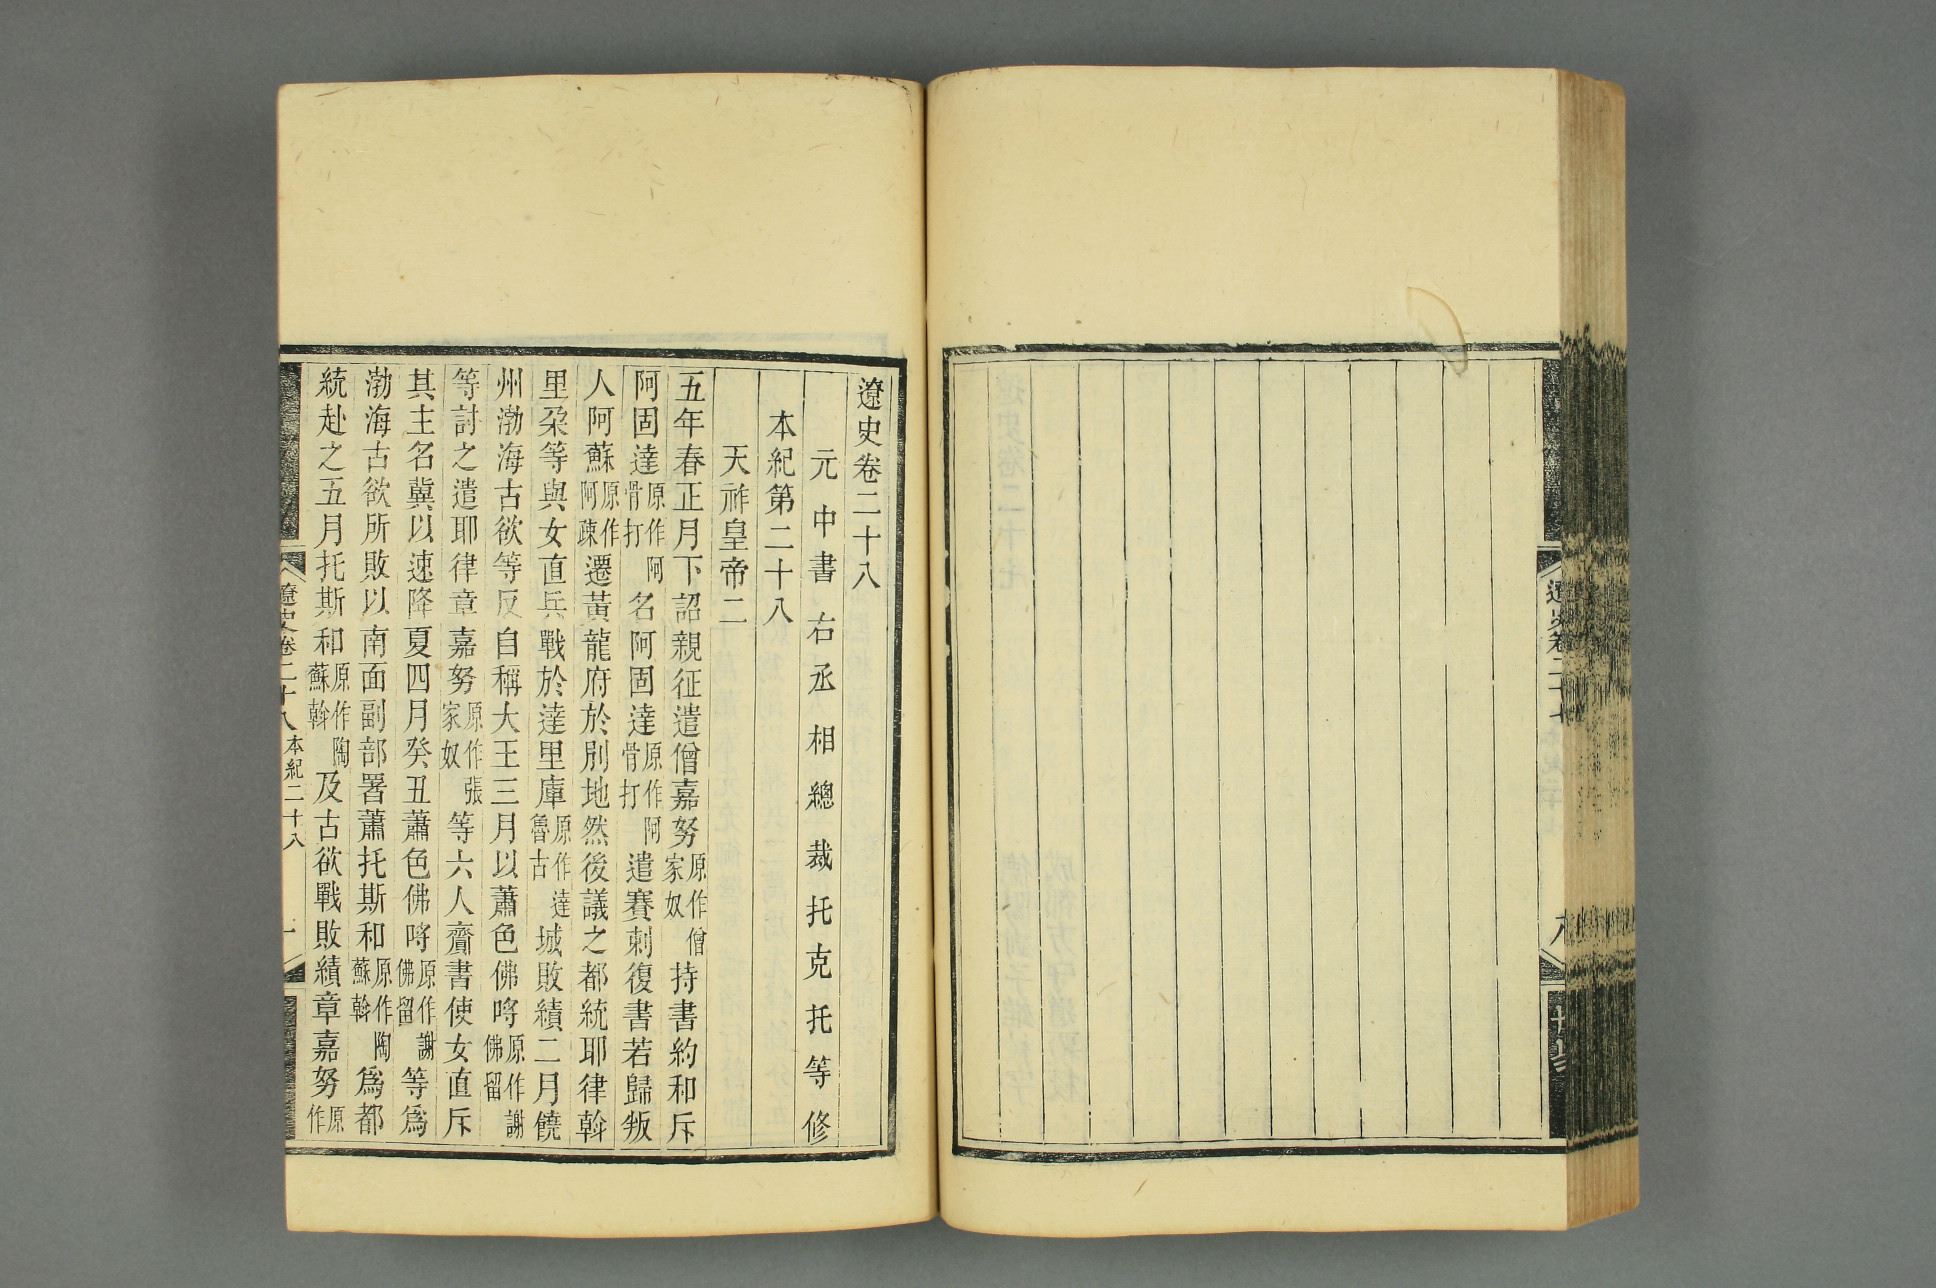 遼史卷二十七
八
遼史卷二十八
元中書右丞相總裁托克托等修
本紀第二十八
天祚皇帝二
五年春正月下詔親征遣僧嘉努原作僧家奴持書約和斥
阿固達原作阿骨打名阿固達原作阿骨打遣賽剌復書若歸叛
人阿蘇原作阿疎遷黃龍府於別地然後議之都統耶律斡
里朵等與女直兵戰於達里庫原作達魯古城敗績二月饒
州渤海古欲等反自稱大王三月以蕭色佛哷原作謝佛留
等討之遣耶律章嘉努原作張家奴等六人齎書使女直斥
其主名冀以速降夏四月癸丑蕭色佛哷原作謝佛留等爲
渤海古欲所敗以南面副部署蕭托斯和原作陶蘇斡爲都
統赴之五月托斯和原作陶蘇斡及古欲戰敗績章嘉努原作
遼史卷二十八 本紀二十八 一